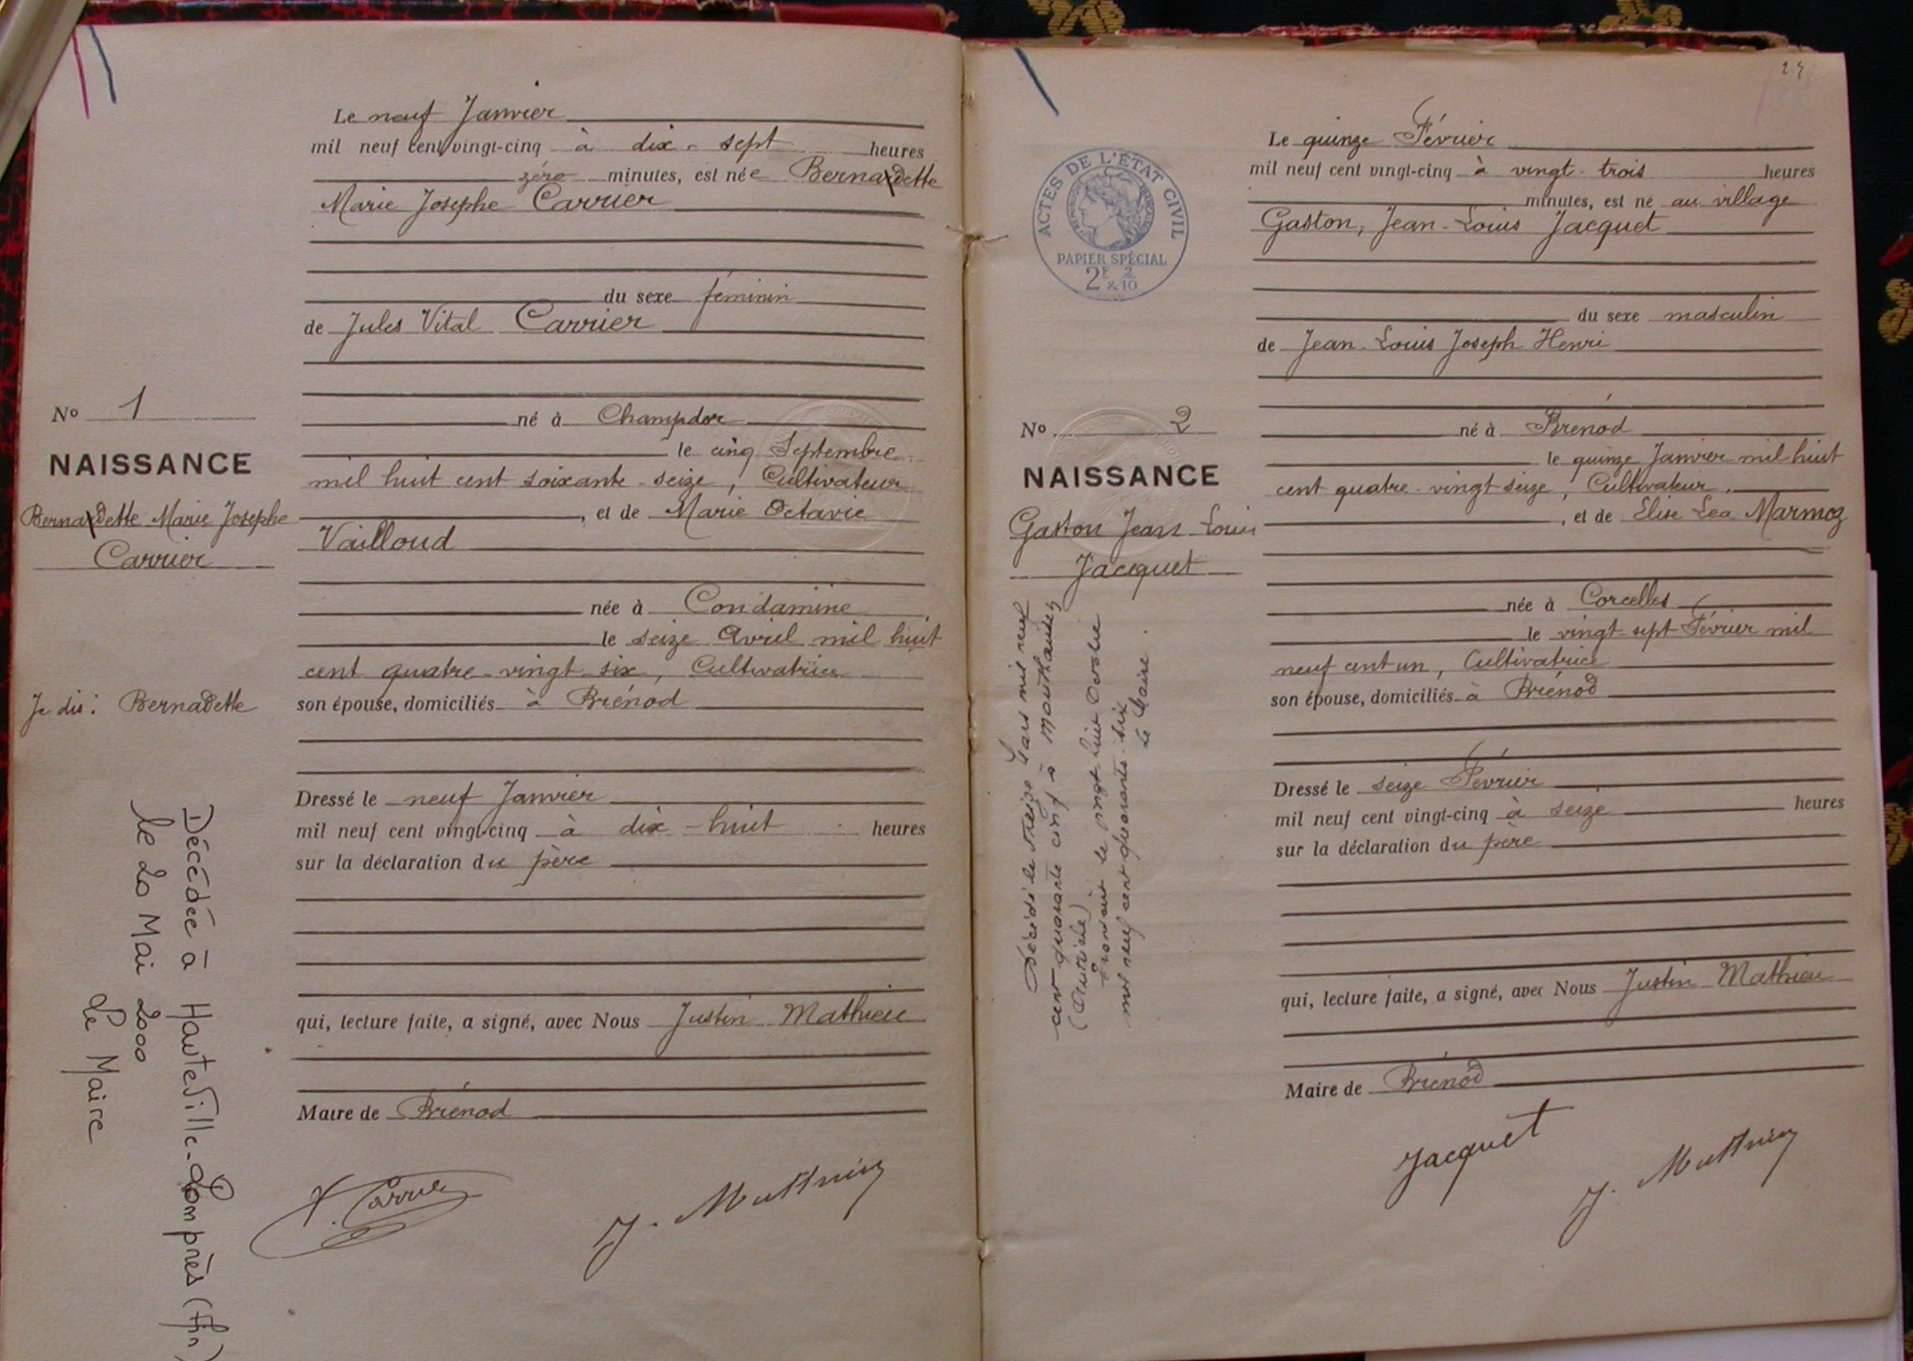 Le neuf Janvier
mil neuf cent vingt-cinq à dix-sept heures
zéro minutes, est née Bernardette
Marie Josephe Carrier
du sexe féminin
de Jules Vital Carrier
né à Champdor
le cinq Septembre
mil huit cent soixante-seize, Cultivateur
, et de Marie Octavie
Vailloud
née à Condamine
le seize Avril mil huit
cent quatre-vingt six, Cultivatrice
son épouse, domiciliés à Brénod
Dressé le neuf Janvier
mil neuf cent vingt-cinq à dix-huit heures
sur la déclaration du père
qui, lecture faite, a signé, avec Nous Justin Mathieu
Maire de Brénod
Carrier
J. Mathieu
No 1
NAISSANCE
Bernardette Marie Josephe
Carrier
Je dis: Bernadette
Décédée à Hauteville-Lompnès (Ain)
le 20 Mai 2000
Le Maire
24
Le quinze Février
mil neuf cent vingt-cinq à vingt-trois heures
minutes, est né au village
Gaston, Jean-Louis Jacquet
du sexe masculin
de Jean-Louis Joseph Henri
né à Brénod
le quinze Janvier mil huit
cent quatre-vingt seize, Cultivateur
, et de Elise Léa Marmoz
née à Corcelles
le vingt sept Février mil
neuf cent un, Cultivatrice
son épouse, domiciliés à Brénod
Dressé le seize Février
mil neuf cent vingt-cinq à seize heures
sur la déclaration du père
qui, lecture faite, a signé, avec Nous Justin Mathieu
Maire de Brénod
Jacquet
J. Mathieu
ACTES DE L'ÉTAT CIVIL
PAPIER SPÉCIAL
2F & 2/10
No 2
NAISSANCE
Gaston Jean Louis
Jacquet
Décédé le treize Mars mil neuf
cent quarante cinq à Mauthausen
(Autriche)
le vingt huit Octobre
mil neuf cent quarante six
Le Maire.